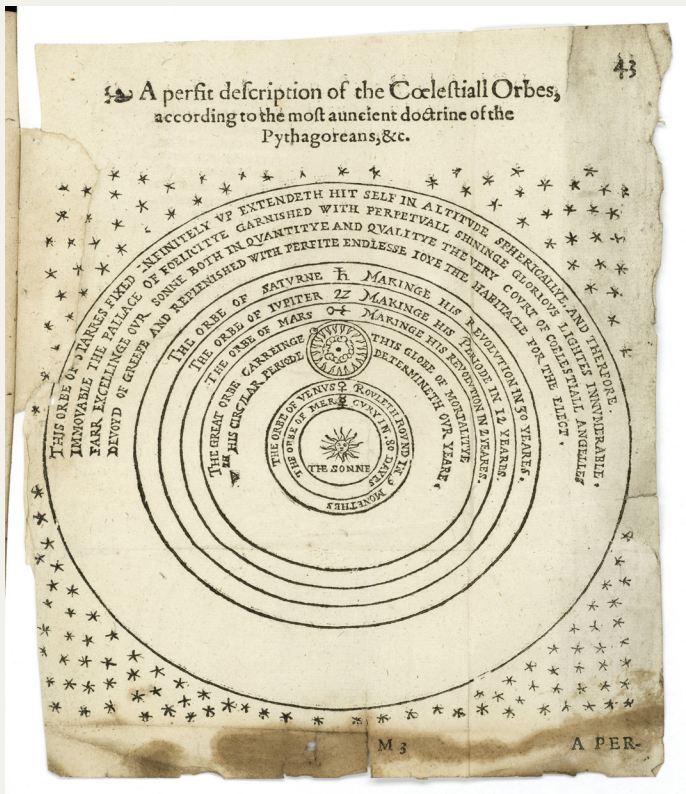 43
A perfit deſcription of the Cœleſtiall Orbes,
according to the moſt auncient doctrine of the
Pythagoreans, &c.
THIS ORBE OF STARRES FIXED INFINITELY VP EXTENDETH HIT SELF IN ALTITVDE SPHERICALLYE, AND THEREFORE.
IMMOVABLE THE PALLACE OF FOELICITYE GARNISHED WITH PERPETVALL SHININGE GLORIOVS LIGHTES INNVMERABLE.
FARR EXCELLINGE OVR SONNE BOTH IN QVANTITYE AND QVALITYE THE VERY COVRT OF COELESTIALL ANGELLES
DEVOYD OF GREEFE AND REPLENISHED WITH PERFITE ENDLESSE IOYE THE HABITACLE FOR THE ELECT.
THE ORBE OF SATVRNE ♄ MAKINGE HIS REVOLVTION IN 30 YEARES.
THE ORBE OF IVPITER ♃ MAKINGE HIS PERIODE IN 12 YEARES.
THE ORBE OF MARS ♂ MAKINGE HIS REVOLVTION IN 2 YEARES.
THE GREAT ORBE CARREINGE THIS GLOBE OF MORTALITYE
WTH HIS CIRCVLAR PERIODE DETERMINETH OVR YEARE.
THE ORBE OF VENVS ♀ ROVLETH ROVND IN 9 MONETHES
THE ORBE OF MERCVRY IN 80 DAYES
THE SONNE
M 3
A PER-